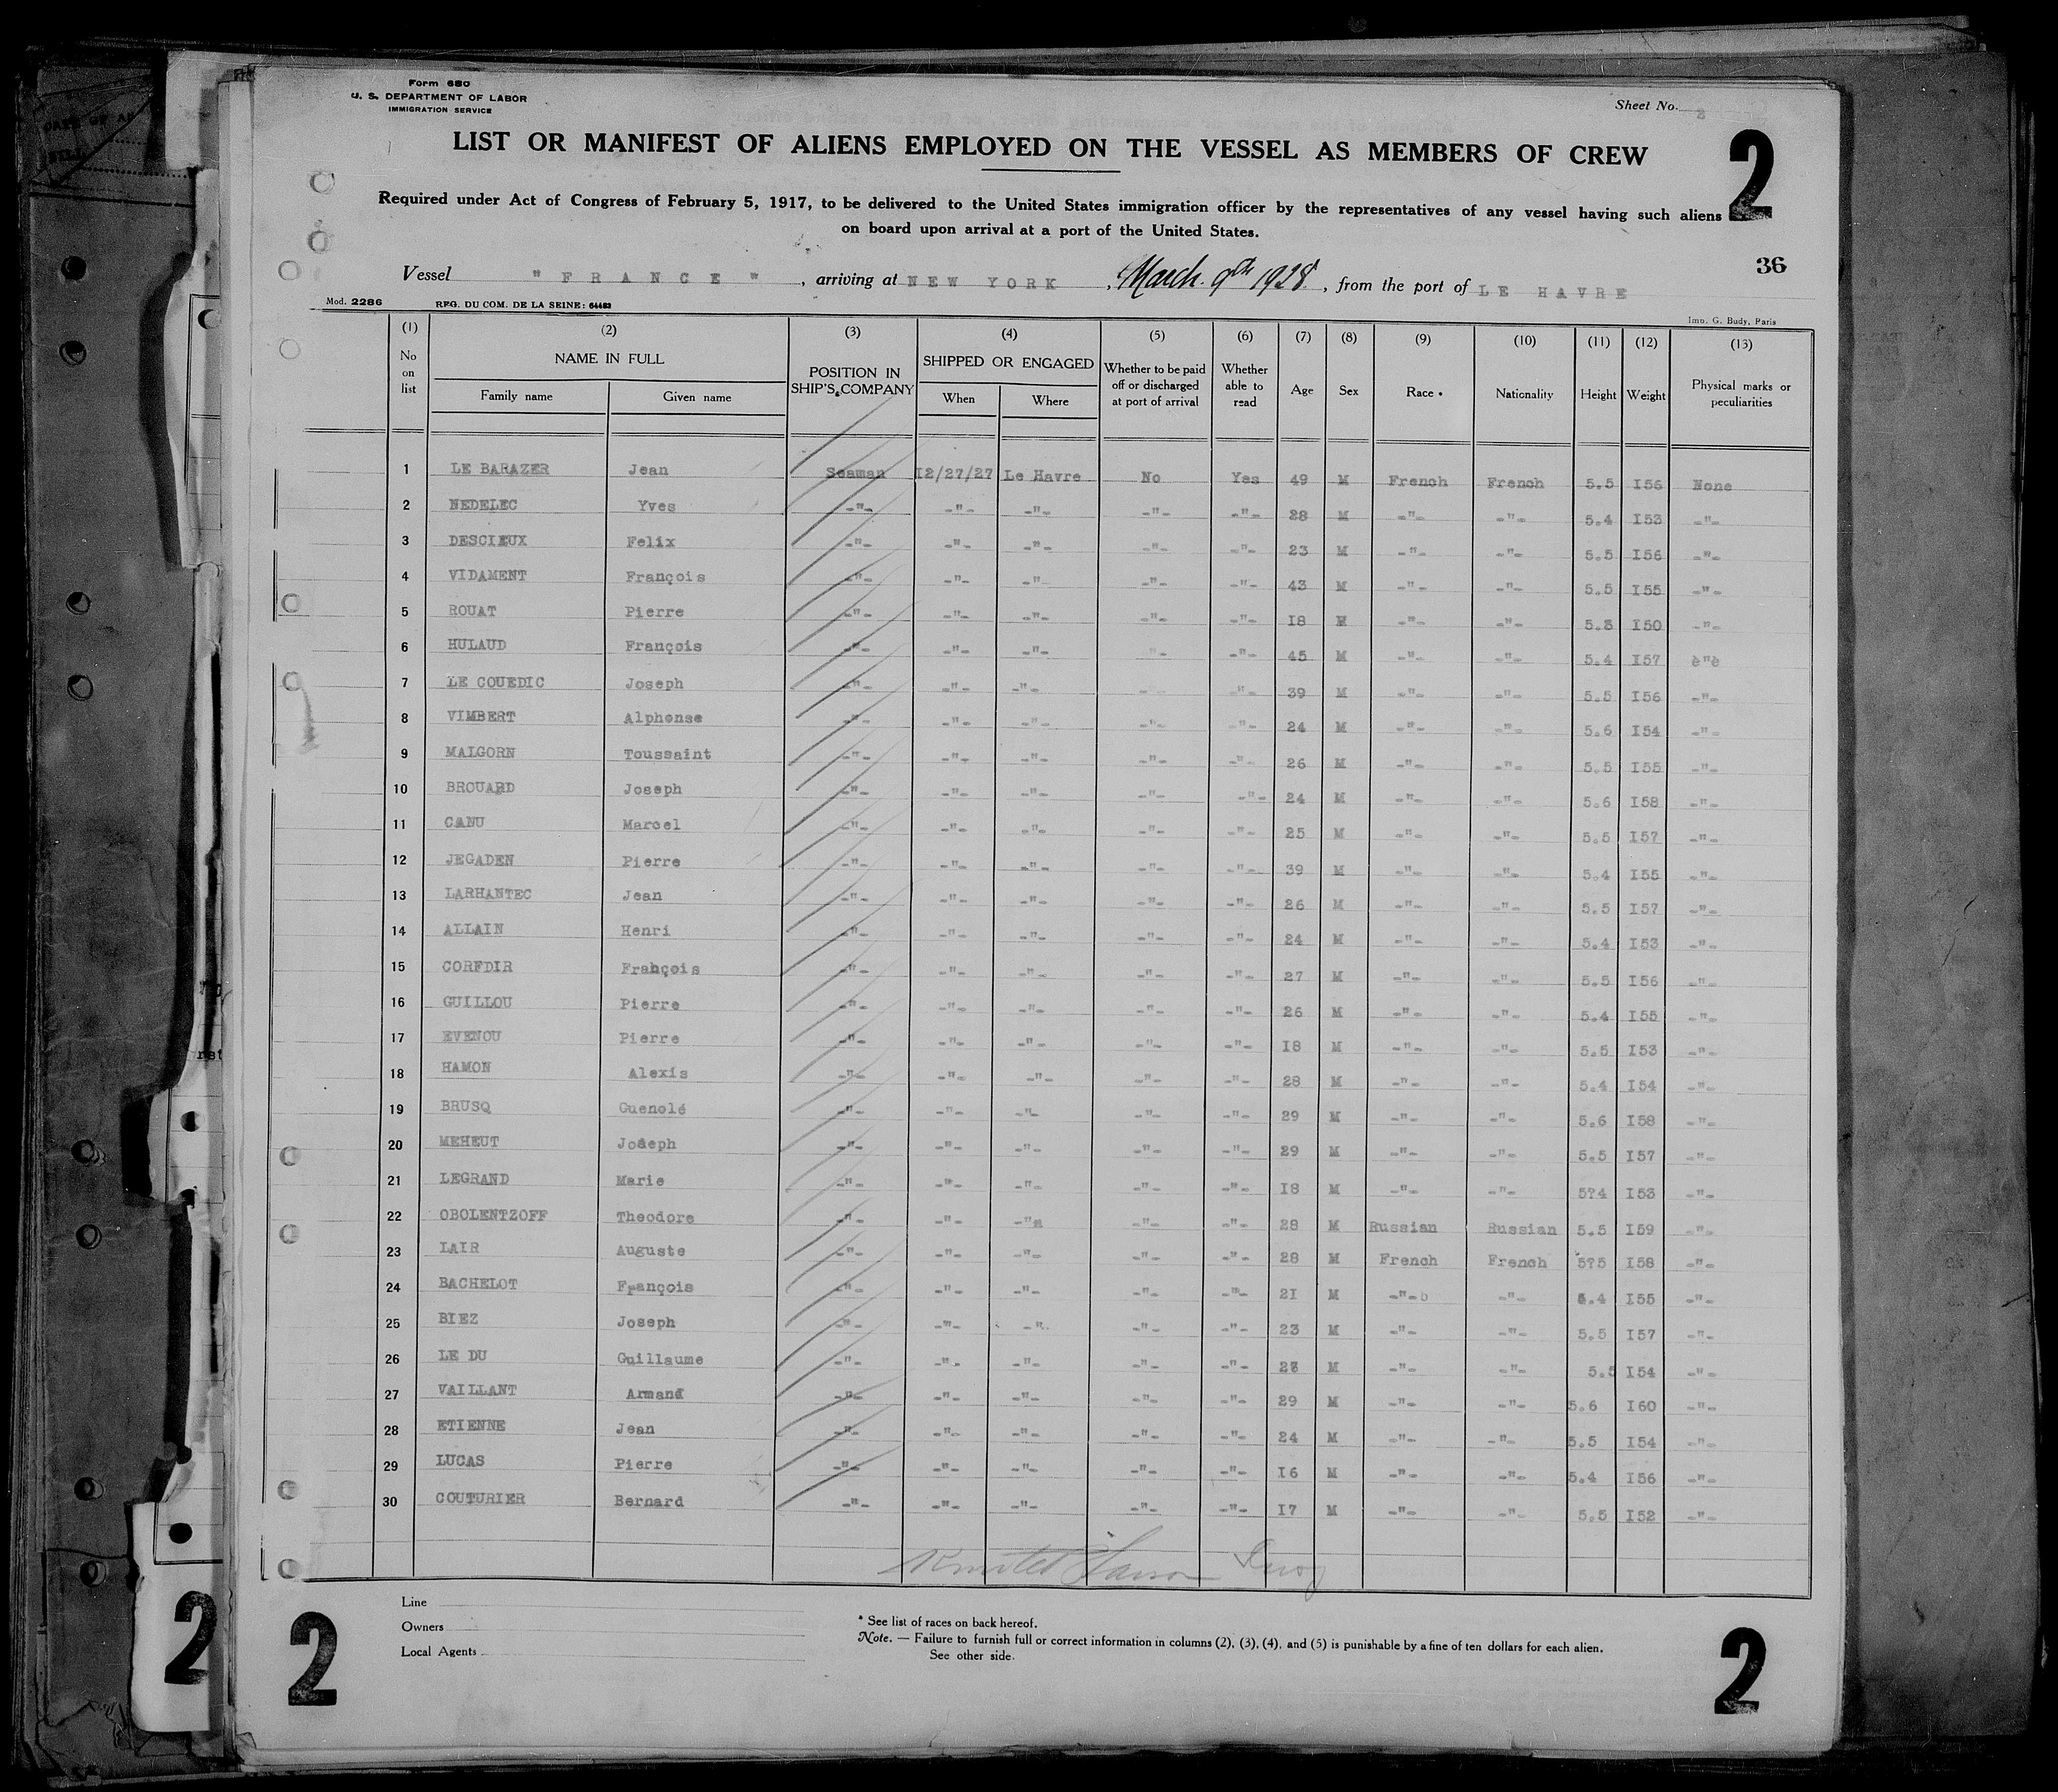 Form 680
U. S. DEPARTMENT OF LABOR
IMMIGRATION SERVICE
Sheet No. 2
LIST OR MANIFEST OF ALIENS EMPLOYED ON THE VESSEL AS MEMBERS OF CREW
2
Required under Act of Congress of February 5, 1917, to be delivered to the United States immigration officer by the representatives of any vessel having such aliens
on board upon arrival at a port of the United States.
36
Vessel " F R A N C E " , arriving at NEW YORK , March 9th 1928 , from the port of LE HAVRE
Mod. 2286 REG. DU COM. DE LA SEINE: 64483
Imp. G. Budy, Paris
(1) (2) (3) (4) (5) (6) (7) (8) (9) (10) (11) (12) (13)
No on list NAME IN FULL Family name Given name POSITION IN SHIP'S COMPANY SHIPPED OR ENGAGED When Where Whether to be paid off or discharged at port of arrival Whether able to read Age Sex Race * Nationality Height Weight Physical marks or peculiarities
1 LE BARAZER Jean Seaman I2/27/27 Le Havre No Yes 49 M French French 5.5 I56 None
2 NEDELEC Yves -"- -"- -"- -"- -"- 28 M -"- -"- 5.4 I53 -"-
3 DESCIEUX Felix -"- -"- -"- -"- -"- 23 M -"- -"- 5.5 I56 -"-
4 VIDAMENT François -"- -"- -"- -"- -"- 43 M -"- -"- 5.5 I55 -"-
5 ROUAT Pierre -"- -"- -"- -"- -"- I8 M -"- -"- 5.3 I50 -"-
6 HULAUD François -"- -"- -"- -"- -"- 45 M -"- -"- 5.4 I57 è"è
7 LE COUEDIC Joseph -"- -"- -"- -"- -"- 39 M -"- -"- 5.5 I56 -"-
8 VIMBERT Alphonse -"- -"- -"- -"- -"- 24 M -"- -"- 5.6 I54 -"-
9 MALGORN Toussaint -"- -"- -"- -"- -"- 26 M -"- -"- 5.5 I55 -"-
10 BROUARD Joseph -"- -"- -"- -"- -"- 24 M -"- -"- 5.6 I58 -"-
11 CANU Marcel -"- -"- -"- -"- -"- 25 M -"- -"- 5.5 I57 -"-
12 JEGADEN Pierre -"- -"- -"- -"- -"- 39 M -"- -"- 5.4 I55 -"-
13 LARHANTEC Jean -"- -"- -"- -"- -"- 26 M -"- -"- 5.5 I57 -"-
14 ALLAIN Henri -"- -"- -"- -"- -"- 24 M -"- -"- 5.4 I53 -"-
15 CORFDIR François -"- -"- -"- -"- -"- 27 M -"- -"- 5.5 I56 -"-
16 GUILLOU Pierre -"- -"- -"- -"- -"- 26 M -"- -"- 5.4 I55 -"-
17 EVENOU Pierre -"- -"- -"- -"- -"- I8 M -"- -"- 5.5 I53 -"-
18 HAMON Alexis -"- -"- -"- -"- -"- 28 M -"- -"- 5.4 I54 -"-
19 BRUSQ Guenolé -"- -"- -"- -"- -"- 29 M -"- -"- 5.6 I58 -"-
20 MEHEUT Joseph -"- -"- -"- -"- -"- 29 M -"- -"- 5.5 I57 -"-
21 LEGRAND Marie -"- -"- -"- -"- -"- I8 M -"- -"- 5?4 I53 -"-
22 OBOLENTZOFF Theodore -"- -"- -"- -"- -"- 28 M Russian Russian 5.5 I59 -"-
23 LAIR Auguste -"- -"- -"- -"- -"- 28 M French French 5?5 I58 -"-
24 BACHELOT François -"- -"- -"- -"- -"- 2I M -"-b -"- 5.4 I55 -"-
25 BIEZ Joseph -"- -"- -"- -"- -"- 23 M -"- -"- 5.5 I57 -"-
26 LE DU Guillaume -"- -"- -"- -"- -"- M -"- -"- 5.5 I54 -"-
27 VAILLANT Armand -"- -"- -"- -"- -"- 29 M -"- -"- 5.6 I60 -"-
28 ETIENNE Jean -"- -"- -"- -"- -"- 24 M -"- -"- 5.5 I54 -"-
29 LUCAS Pierre -"- -"- -"- -"- -"- I6 M -"- -"- 5.4 I56 -"-
30 COUTURIER Bernard -"- -"- -"- -"- -"- I7 M -"- -"- 5.5 I52 -"-
Line
Owners
Local Agents
* See list of races on back hereof.
Note. — Failure to furnish full or correct information in columns (2), (3), (4), and (5) is punishable by a fine of ten dollars for each alien.
See other side.
2
2
2